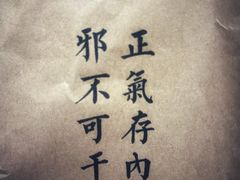 正氣存內
邪不可干